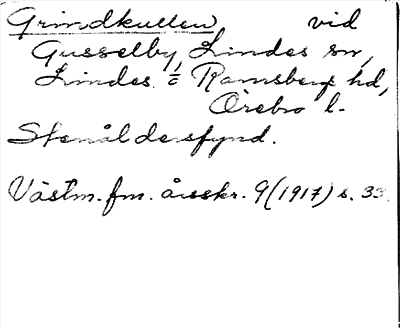 Grindkullen vid
Gusselby, Lindes sn,
Lindes o Ramsbergs hd,
Örebro l.
Stenåldersfynd.
Västm. fm. årsskr. 9 (1917) s. 33